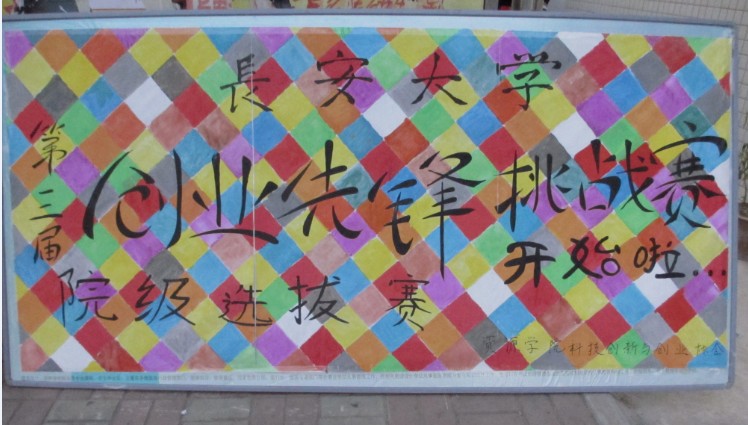 長安大学
第三届
创业先锋挑战赛
开始啦...
院级选拔赛
资源学院科技创新与创业协会